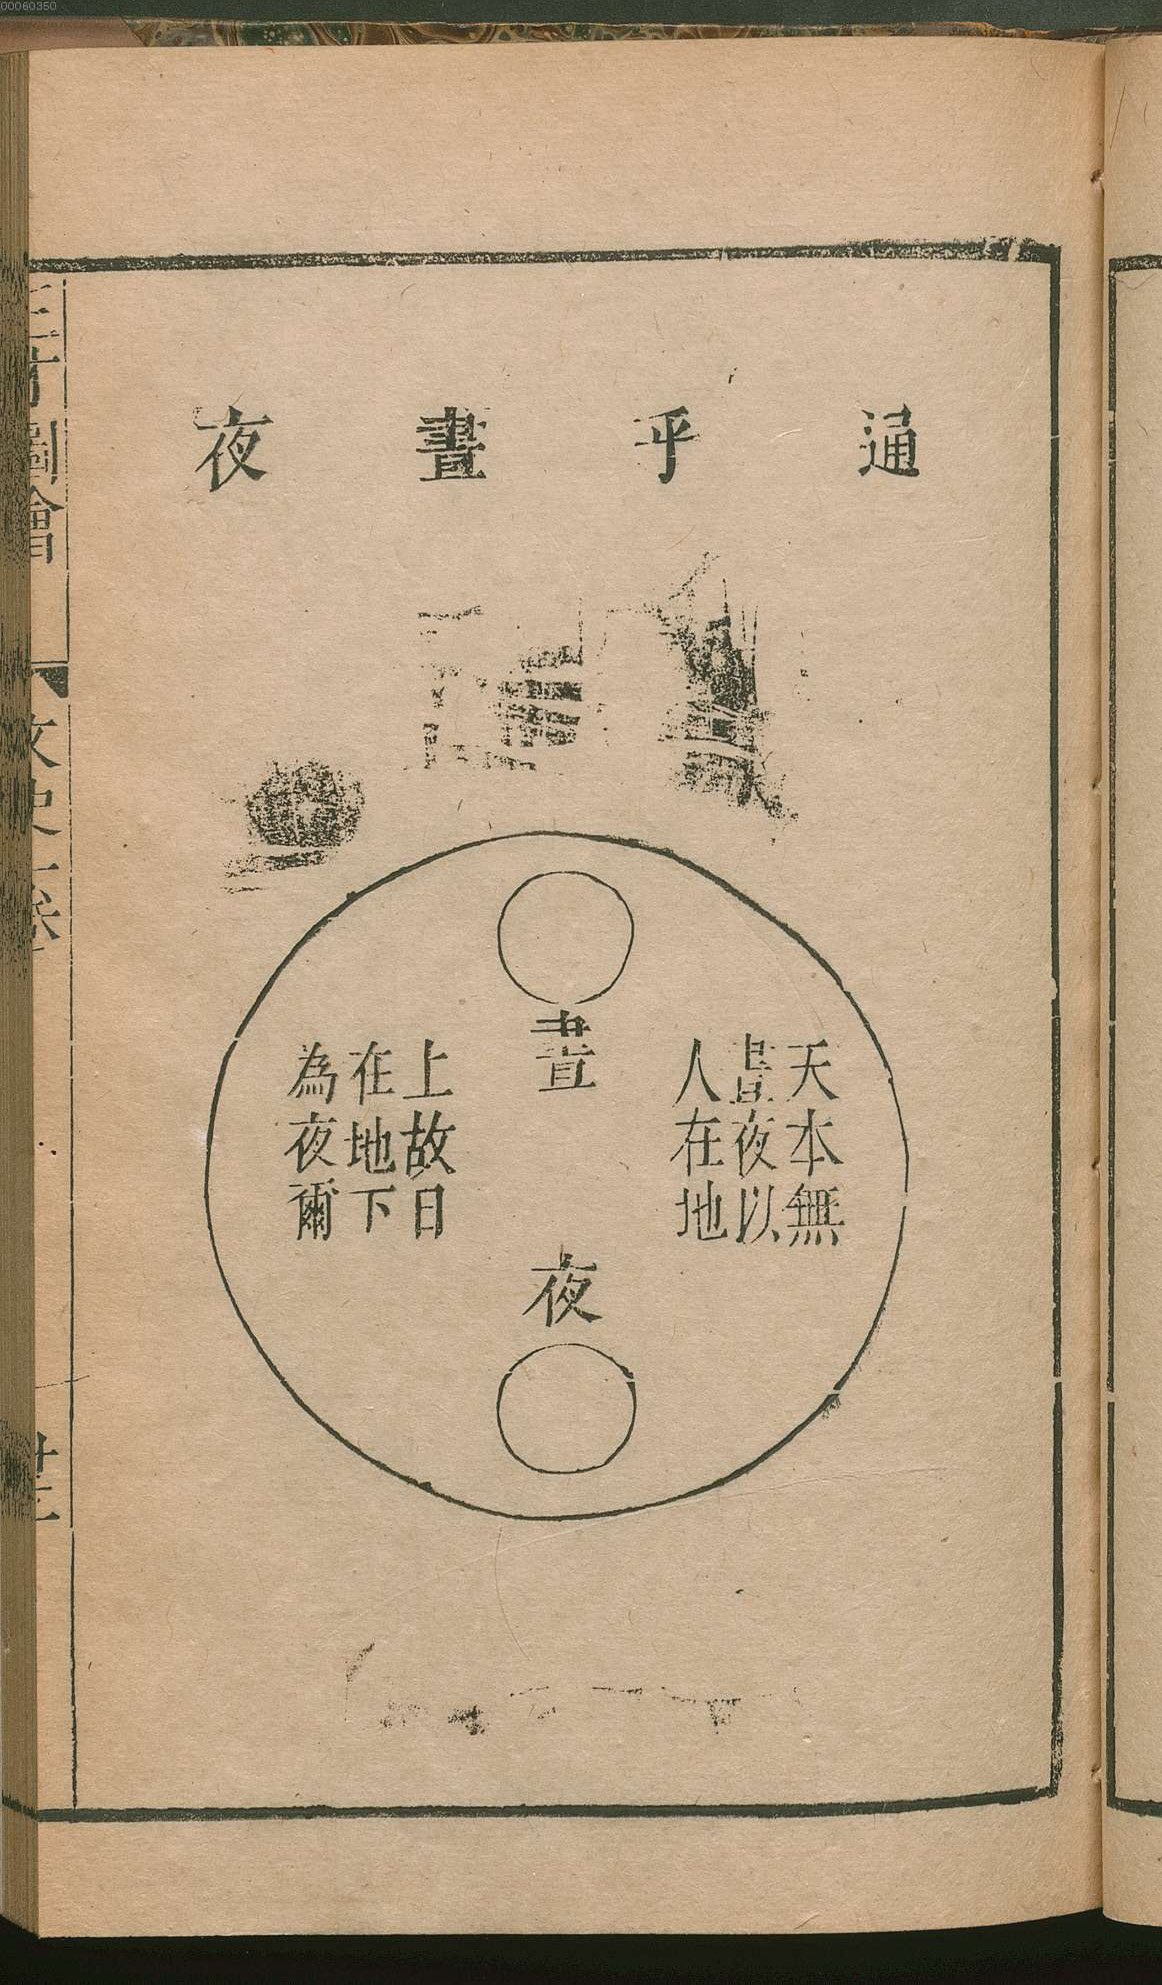 00060350
通乎晝夜
天本無
晝夜以
人在地
晝
夜
上故日
在地下
為夜爾
三才圖會
文史一卷